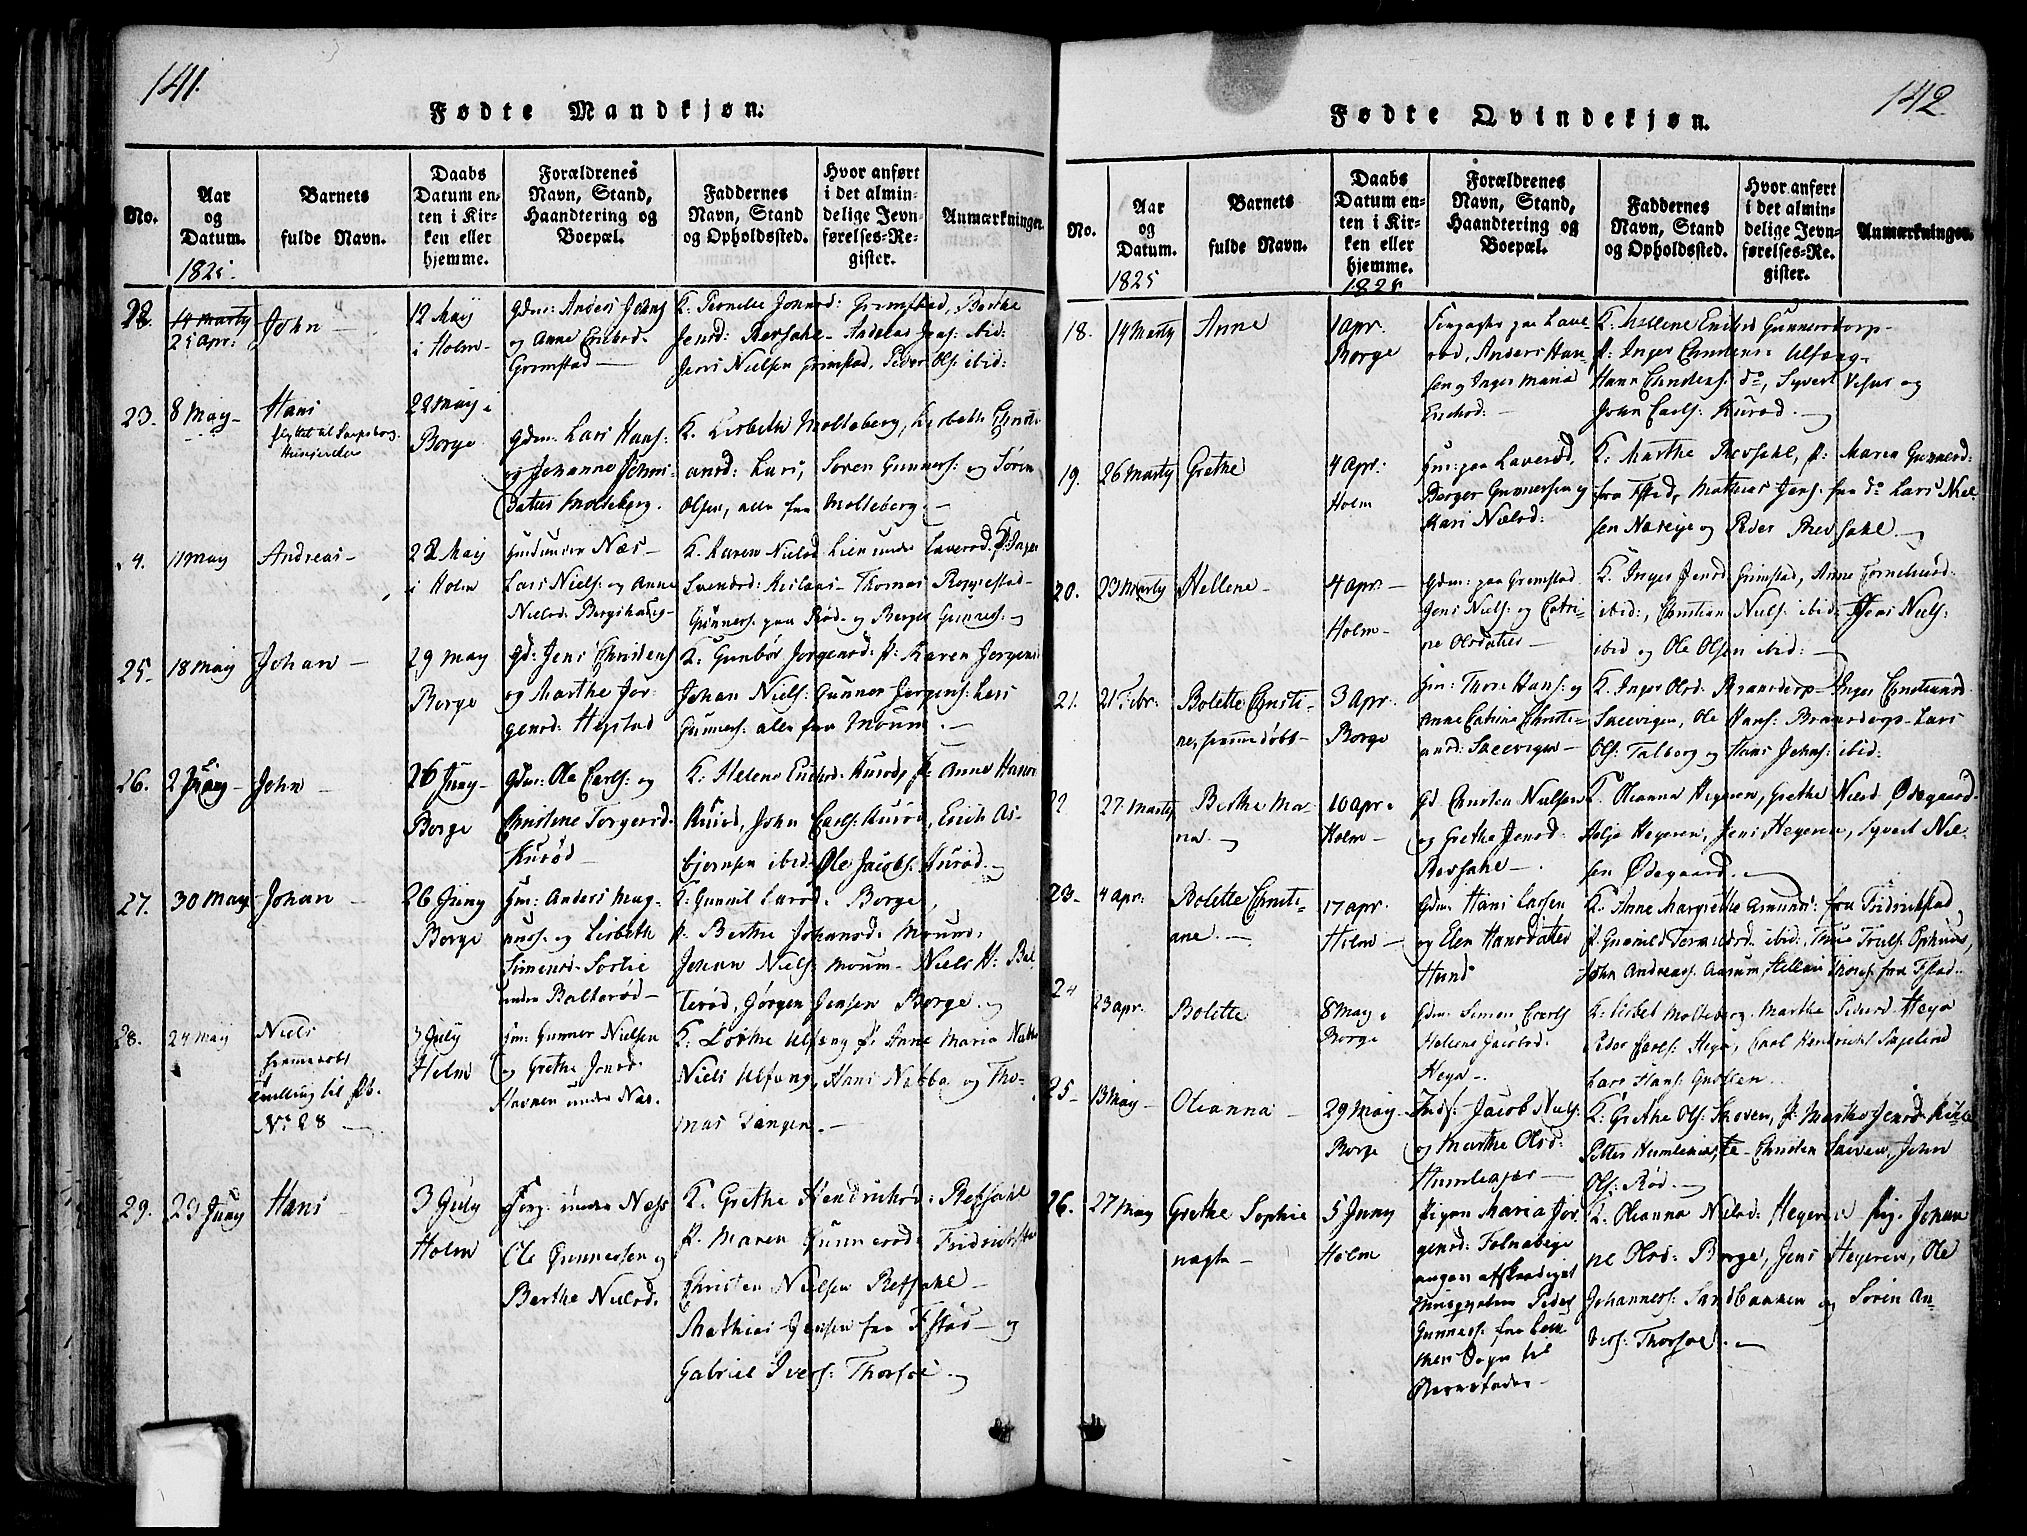 141.
Fødte Mandkjøn.
No.
Aar
og
Datum.
1825.
Barnets
fulde Navn.
Daabs
Datum en-
ten i Kir-
ken eller
hjemme.
Forældrenes
Navn, Stand,
Haandtering og
Boepæl.
Faddernes
Navn, Stand
og Opholdssted.
Hvor anført
i det almin-
delige Jevn-
førelses-Re-
gister.
Anmærkninger.
22.
14 Marty
25 apr:
John
12 May
i Holm
Gdm: Anders Johns
og Anne Ericksd.
Grimstad
K. Pernelle Johnsd: Grimstad, Berthe
Jensd: Revsahl Andreas Jens: ibid:
Jens Nielsen Grimstad, Peder Ols: ibid:
23.
8 May
Hans
flyttet til Sarpsborg
22 May i
Borge
Gdm: Lars Hans:
og Johanne Johns
Datter Molteberg.
K. Lisbeth Molteberg, Lisbeth Christi-
ansd: Lars, Søren Gunners: og Søren
Olsen, alle fra Molteberg
4.
11 May
Andreas
22 May
i Holm
Huusm under Næs
Lars Niels: og Anne
Nielsd: Bergshaug
K. Karen Nielsd Lien under Lavered. P. Inger
Svendsd: Thomas Roppestad
Gunners: paa Rød og Berger Gunners:
25.
18 May
Johan
29 May
Borge
Gd: Jens Christens
og Marthe Jør-
gensd: Hegstad
K: Gunbør Jørgensd: P: Karen Jørgens
Johan Niels: Gunner Jørgens: Lars
Gunners: alle fra Moum
26.
John
26 Juny
Borge
Gdm: Ole Carls: og
Christine Torgersd.
Kurød
K: Helene Ericksd: Kurød, P: Anne Hans
Kurød, John Carls: Kurød, Erich As-
bjørnsen ibid: Ole Jacobs: Kurød
27.
30 May
Johan
26 Juny
Borge
Hm: Anders Mag-
nuss. og Lisbeth
Simensd. Sortie
under Balterød
K: Gunnil Larsd: Borge
P. Berthe Johansd: Moum:
Johan Niels: Moum Niels H: Bal
terød, Jørgen Jensen Borge
28.
24 May
Niels
hjemmedøbt
Tvilling til
No 28
3 July
Holm
Hm: Gunner Nielsen
og Grethe Jonsd:
Havnen under Næs
K. Dorthe Ulfeng P. Anne Maria Nabbe
Niels Ulfeng, Hans Nabbe og Tho-
mas Tangen.
29.
29 Juny
Hans
3 July
Holm
Forp: under Næss
Ole Gunnersen og
Berthe Nielsd.
K. Grethe Hendrichsd: Refsahl
P. Maren Gunnersd: Fridrichsta
Christen Nielsen Refsahl
Mathias Jensen fra Fstad og
Gabriel Ivers: Thorsøe
142.
Fødte Qvindekjøn.
No.
Aar
og
Datum.
1825
Barnets
fulde Navn.
Daabs
Datum en-
ten i Kir-
ken eller
hjemme.
1825
Forældrenes
Navn, Stand,
Haandtering og
Boepæl.
Faddernes
Navn, Stand
og Opholdssted.
Hvor anført
i det almin-
delige Jevn-
førelses-Re-
gister.
Anmærkninger.
18.
14 Marty
Anne
1 apr.
Borge
Forpagter paa Lave-
rød, Anders Han-
sen og Inger Maria
Ericksd:
K. Hellene Ericksd Gunnerstorp
P: Inger Christens: Ulfeng
Hans Christens: do, Syvert Vesus og
John Carls: Kurød.
19.
26 Marty
Grethe
4 apr:
Holm
Hm: paa Laverød,
Berger Gunnersen og
Kari Nielsd:
K: Marthe Revsahl, P: Maren Gunnersd:
fra Fstad, Mathias Jens: fra do Lars Niel
sen og Peder Revsahl
20.
23 Marty
Hellene
4 apr
Holm
Gdm: paa Gremstad
Jens Niels: og Catri-
ne Olsdatter
K. Inger Jensd Grimstad, Anne Corneliusd:
ibid:, Christian Niels: ibid: Jens Niels:
ibid og Ole Olsen ibid:
21.
21 Febr.
Bolette Christi-
ne, hjemmedøbt
3 apr.
Borge
Hm: Thore Hans: og
Anne Catrine Christi-
ansd: Saltvigen
K: Inger Olsd: Bransdorp Inger Christiansd
Saltvigen, Ole Hans: Bransdorp Lars
Ols: Talborg og Hans Johns: ibid:
22
27 Marty
Berthe Ma-
ria.
10 apr.
Holm
Gd Christen Nielsen
og Grethe Jensd:
Revsahl
K. Oleanna Hegeren, Grethe Nielsd Ødegaard
Helje Hegeren, Jens Hegeren, Syvert Niel-
sen Ødegaard.
23
4 apr.
Bolette Christi-
ane.
17 apr.
Holm
Gdm: Hans Larsen
og Elen Hansdatter
Hund
K. Anne Margrethe Asmund: fra Fridrichstad
P. Gunnild ibid: Truls: Ophuus,
John Andreass. Aarum, Hellene Thores: fra Fstad
24
23 apr.
Bolette
8 May i
Borge
Gdm: Simon Carls
Helene Jacobsd.
Heya
K. Lisbet Molteberg. Marthe Pedersd Heya
Peder Carls: Heya, Carl Hendrichs
Lars Hans:
25
13 May
Oleanna
29 May
Borge
Inds: Jacob Niels:
og Marthe Olsd:
Humlekjær
K: Grethe Ols: Skoven, P: Marthe Jensd
Petter Humlekjær, Christen Skoven, John
Ols: Rød.
26.
27 May
Grethe Sophie
uægte
5 Juny
Holm
Pigen Maria Jør
gensd: Tolnabige
angav afskeediget
Musqueteer Peder
Gunners: fra
Sogn til
Barnefader
K. Oleanna Nielsd: Hegeren Pig: Johan
ne Olsd: Borge, Jens Hegeren, Ole
Johanness: Sandbakken og Søren An-
ders: Thorsøe.